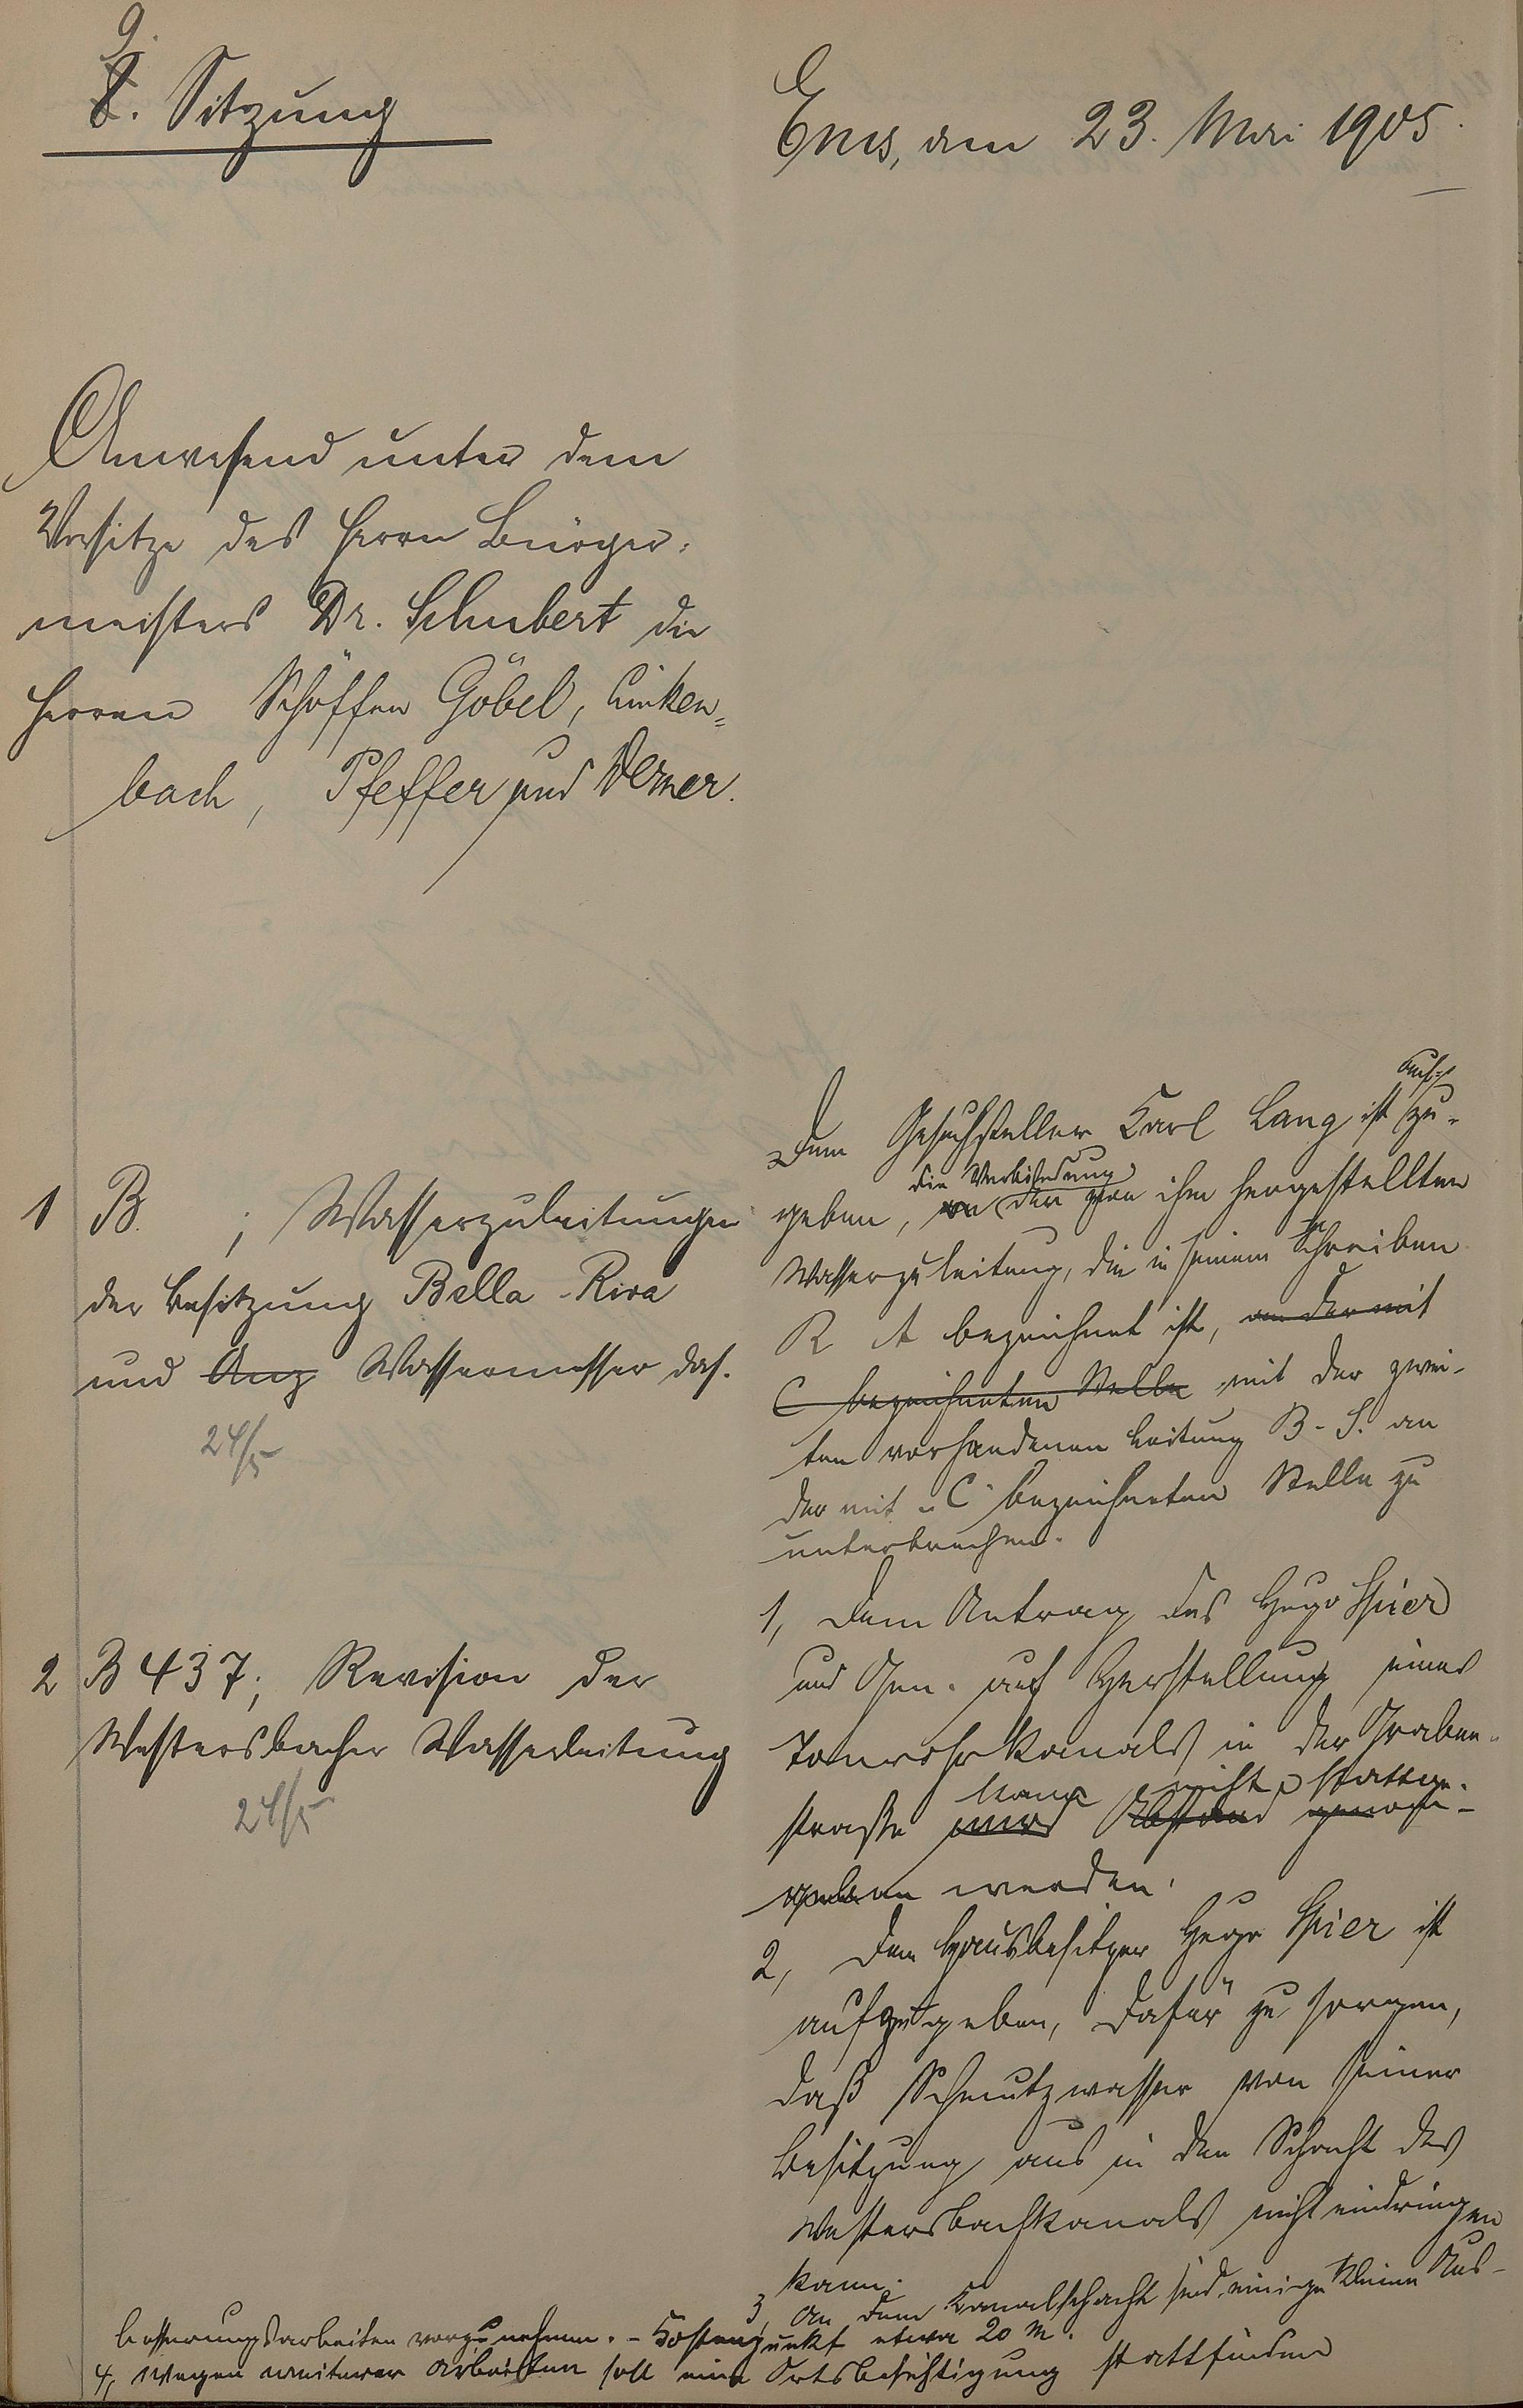 9.
8. Sitzung
Ems, am 23. Mai 1905.
Anwesend unter dem
Vorsitze des Herrn Bürger-
meisters Dr. Schubert die
Herren Schöffen Göbel, Linken-
bach, Pfeffer und
1 B. ; Wasserzuleitungen
der Besitzung Bella-Riva
und Anz Wassermesser das.
24/5
auf-
Dem Gesuchsteller Karl Lang ist zu-
die Verbindung
geben, der von ihm hergestellten
Wasserzuleitung, die in seinem Schreiben
R A bezeichnet ist, an der mit
C bezeichneten Stelle mit der zwei-
ten vorhandenen Leitung B-S. an
der mit "C" bezeichneten Stelle zu
unterbrechen.
2 B 437; Revision der
Westersbacher Wasserleitung
24/5
1, Dem Antrag des Hugo Spier
und Gen. auf Herstellung eines
Tonrohrkanals in der Graben-
kann nicht stattge-
straße wird Abstand genom-
geben werden.
2, Dem Hausbesitzer Hugo Spier ist
aufzugeben, dafür zu sorgen,
daß Schmutzwasser von seiner
Besitzung aus in den Schacht des
Westersbachkanals nicht eindringen
kann.
3, An dem Kanalschacht sind einige kleine Aus-
besserungsarbeiten vorzunehmen. - Kostenpunkt etwa 20 M.
4, Wegen weiterer Arbeiten soll eine Ortsbesichtigung stattfinden